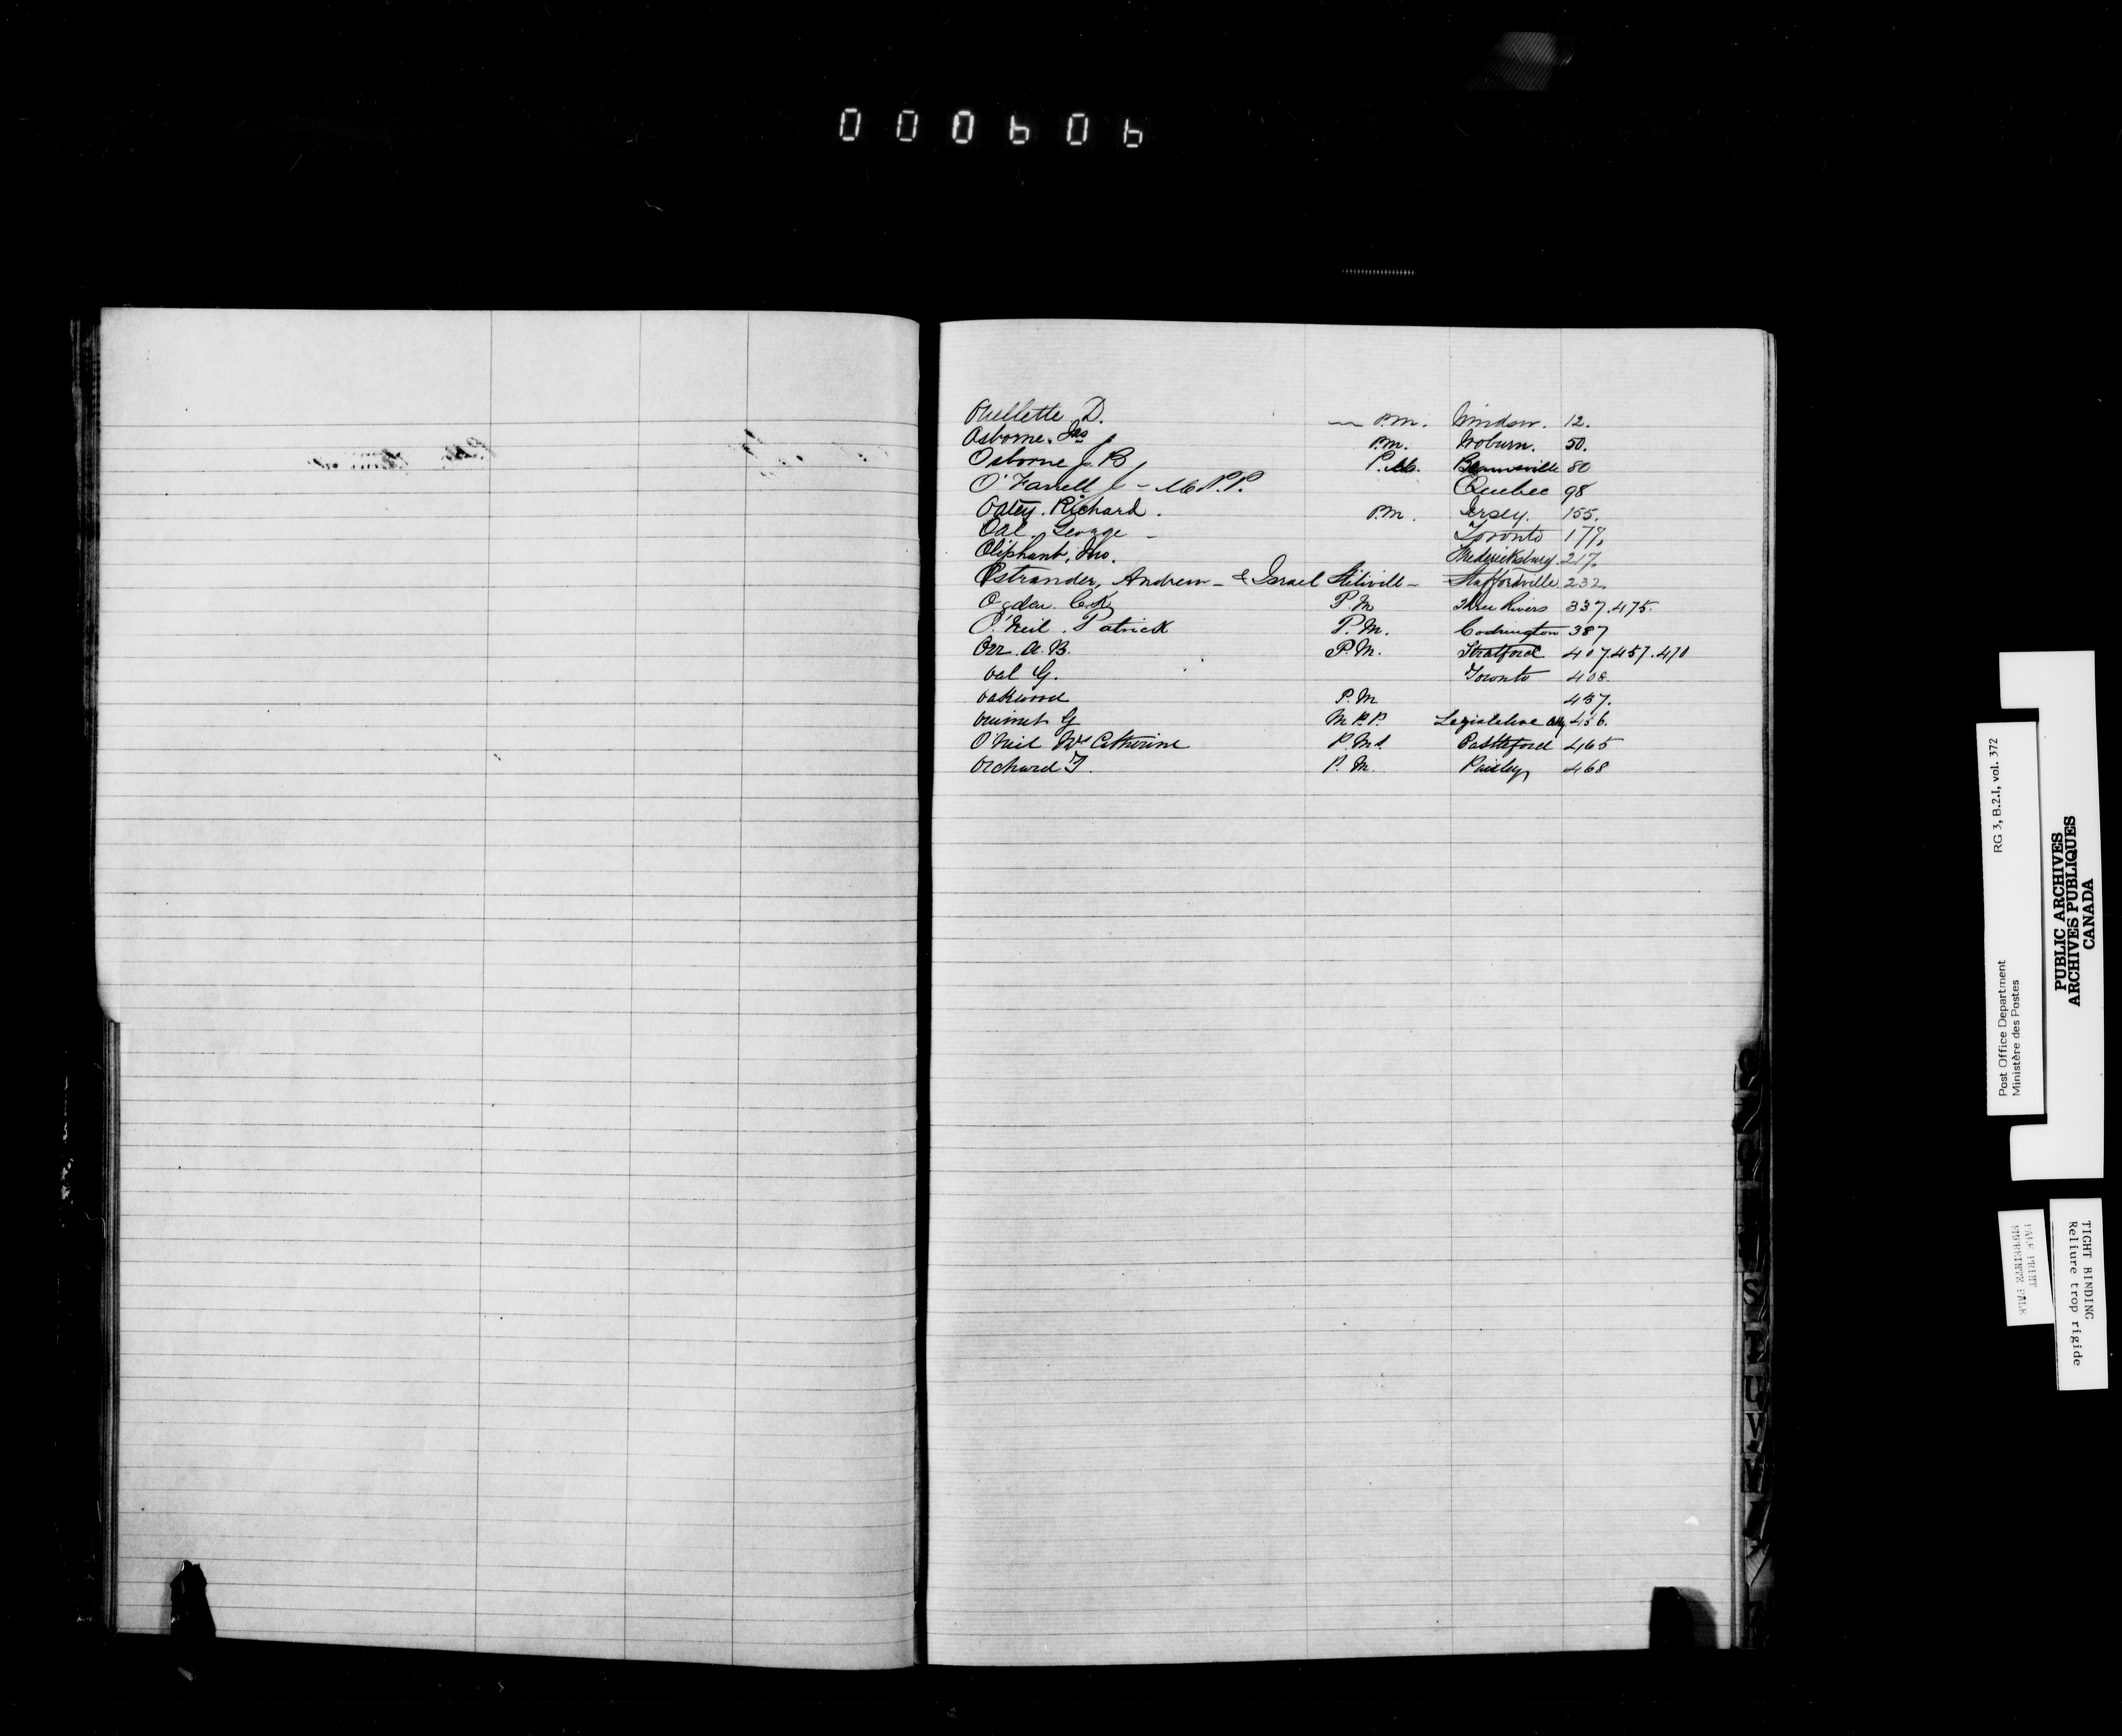 000606
Ouellette D. P.M. Windsor. 12.
Osborne. Jas P.M. Woburn. 50.
Osborne J. B P.M. Beamsville 80
O'Farrell J - M.P.P. Quebec 98
Oatey. Richard. P.M. Jersey. 155.
Oal. George - Toronto 177.
Oliphant, Jno. Fredericksburg. 217.
Ostrander, Andrew - & Israel - Staffordville 232.
Ogden. C.K P.M Three Rivers 337.475.
O'Neil. Patrick P.M. Codrington 387
Orr. A. B. P.M. Stratford 407.457.470
Oal G. Toronto 408.
Oakwood P.M 437.
Ouimet G M.P.P. Legislative 456.
O'Neil Mrs Catherine P.Ms. Battleford 465
Orchard T. P.M. Paisley 468
Post Office Department RG 3, B.2.I, vol. 372
Ministère des Postes
PUBLIC ARCHIVES
ARCHIVES PUBLIQUES
CANADA
TIGHT BINDING
Reliure trop rigide
PALE PRINT
IMPRIMÉ PALE
S
T
U
V
W